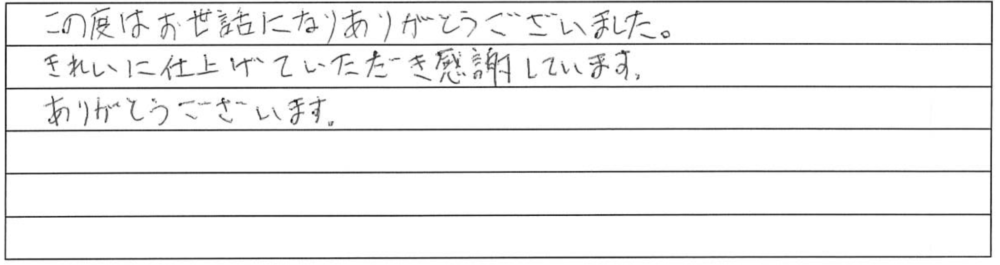 この度はお世話になりありがとうございました。
きれいに仕上げていただき感謝しています。
ありがとうございます。